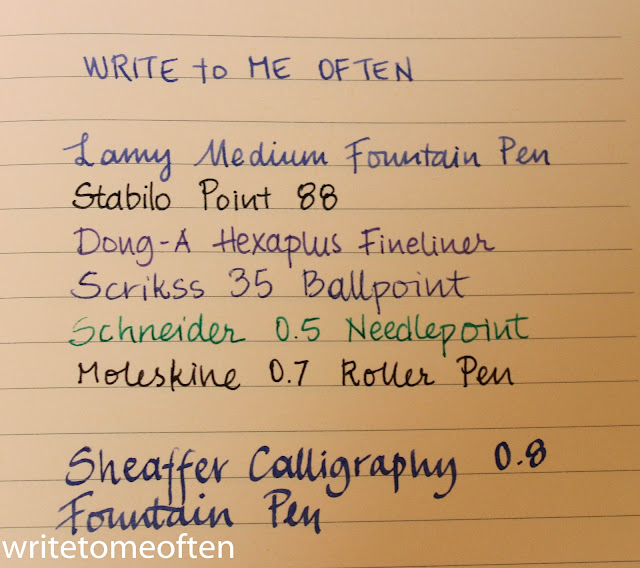 WRITE to ME OFTEN
Lamy Medium Fountain Pen
Stabilo Point 88
Dong-A Hexaplus Fineliner
Scrikss 35 Ballpoint
Schneider 0.5 Needlepoint
Moleskine 0.7 Roller Pen
Sheaffer Calligraphy 0.8
Fountain Pen
writetomeoften